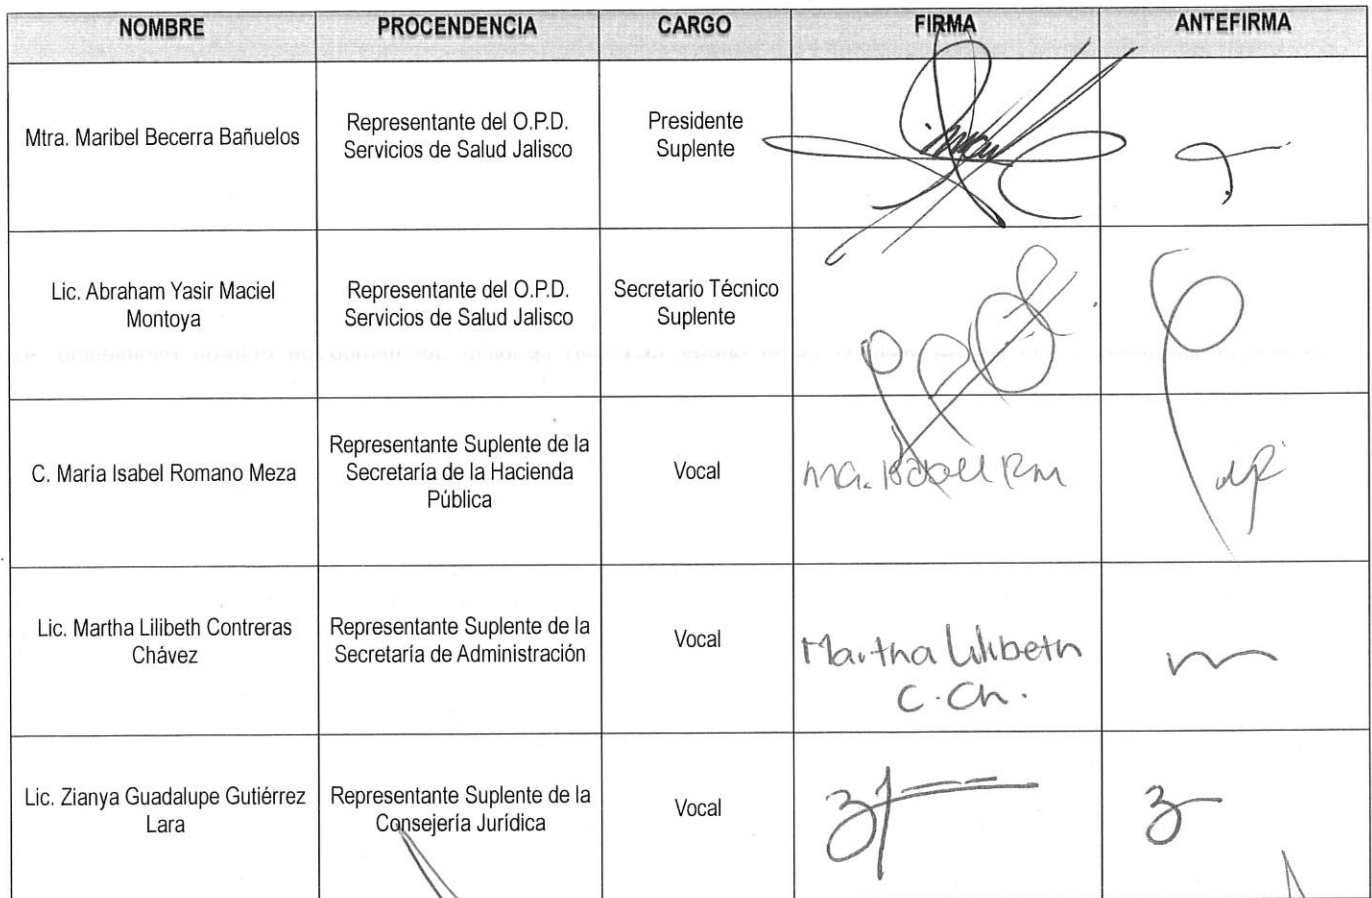 NOMBRE PROCENDENCIA CARGO FIRMA ANTEFIRMA
Mtra. Maribel Becerra Bañuelos
Representante del O.P.D.
Servicios de Salud Jalisco
Presidente
Suplente
Lic. Abraham Yasir Maciel
Montoya
Representante del O.P.D.
Servicios de Salud Jalisco
Secretario Técnico
Suplente
C. María Isabel Romano Meza
Representante Suplente de la
Secretaría de la Hacienda
Pública
Vocal
Ma. Isabel RM
Lic. Martha Lilibeth Contreras
Chávez
Representante Suplente de la
Secretaría de Administración
Vocal
Martha Lilibeth
C. Ch.
Lic. Zianya Guadalupe Gutiérrez
Lara
Representante Suplente de la
Consejería Jurídica
Vocal